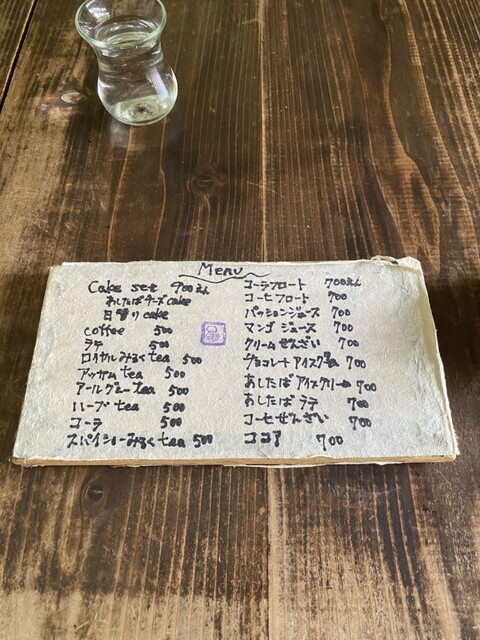 Menu
Cake set 900えん
あしたばチーズcake
日替りcake
coffee 500
ラテ 500
ロイヤルみるくtea 500
アッサムtea 500
アールグレーtea 500
ハーブtea 500
コーラ 500
スパイシーみるくtea 500
コーラフロート 700えん
コーヒフロート 700
パッションジュース 700
マンゴジュース 700
クリームぜんざい 700
チョコレートアイスクリーム 700
あしたばアイスクリーム 700
あしたばラテ 700
コーヒぜんざい 700
ココア 700